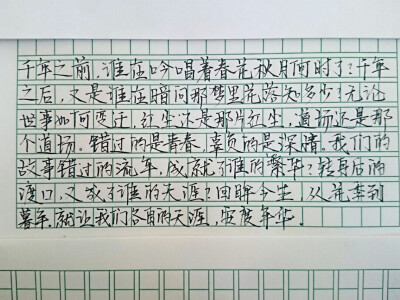 千年之前，谁在吟唱着春花秋月何时了？千年
之后，又是谁在暗问那梦里花落知多少？无论
世事如何变迁，红尘还是那片红尘，道场还是那
个道场。错过的是青春，辜负的是深情。我们的
故事错过的流年，成就了谁的繁华？转身后的
渡口，又教了谁的天涯？回眸今生，从花季到
暮年，就让我们各自的天涯，安度年华。